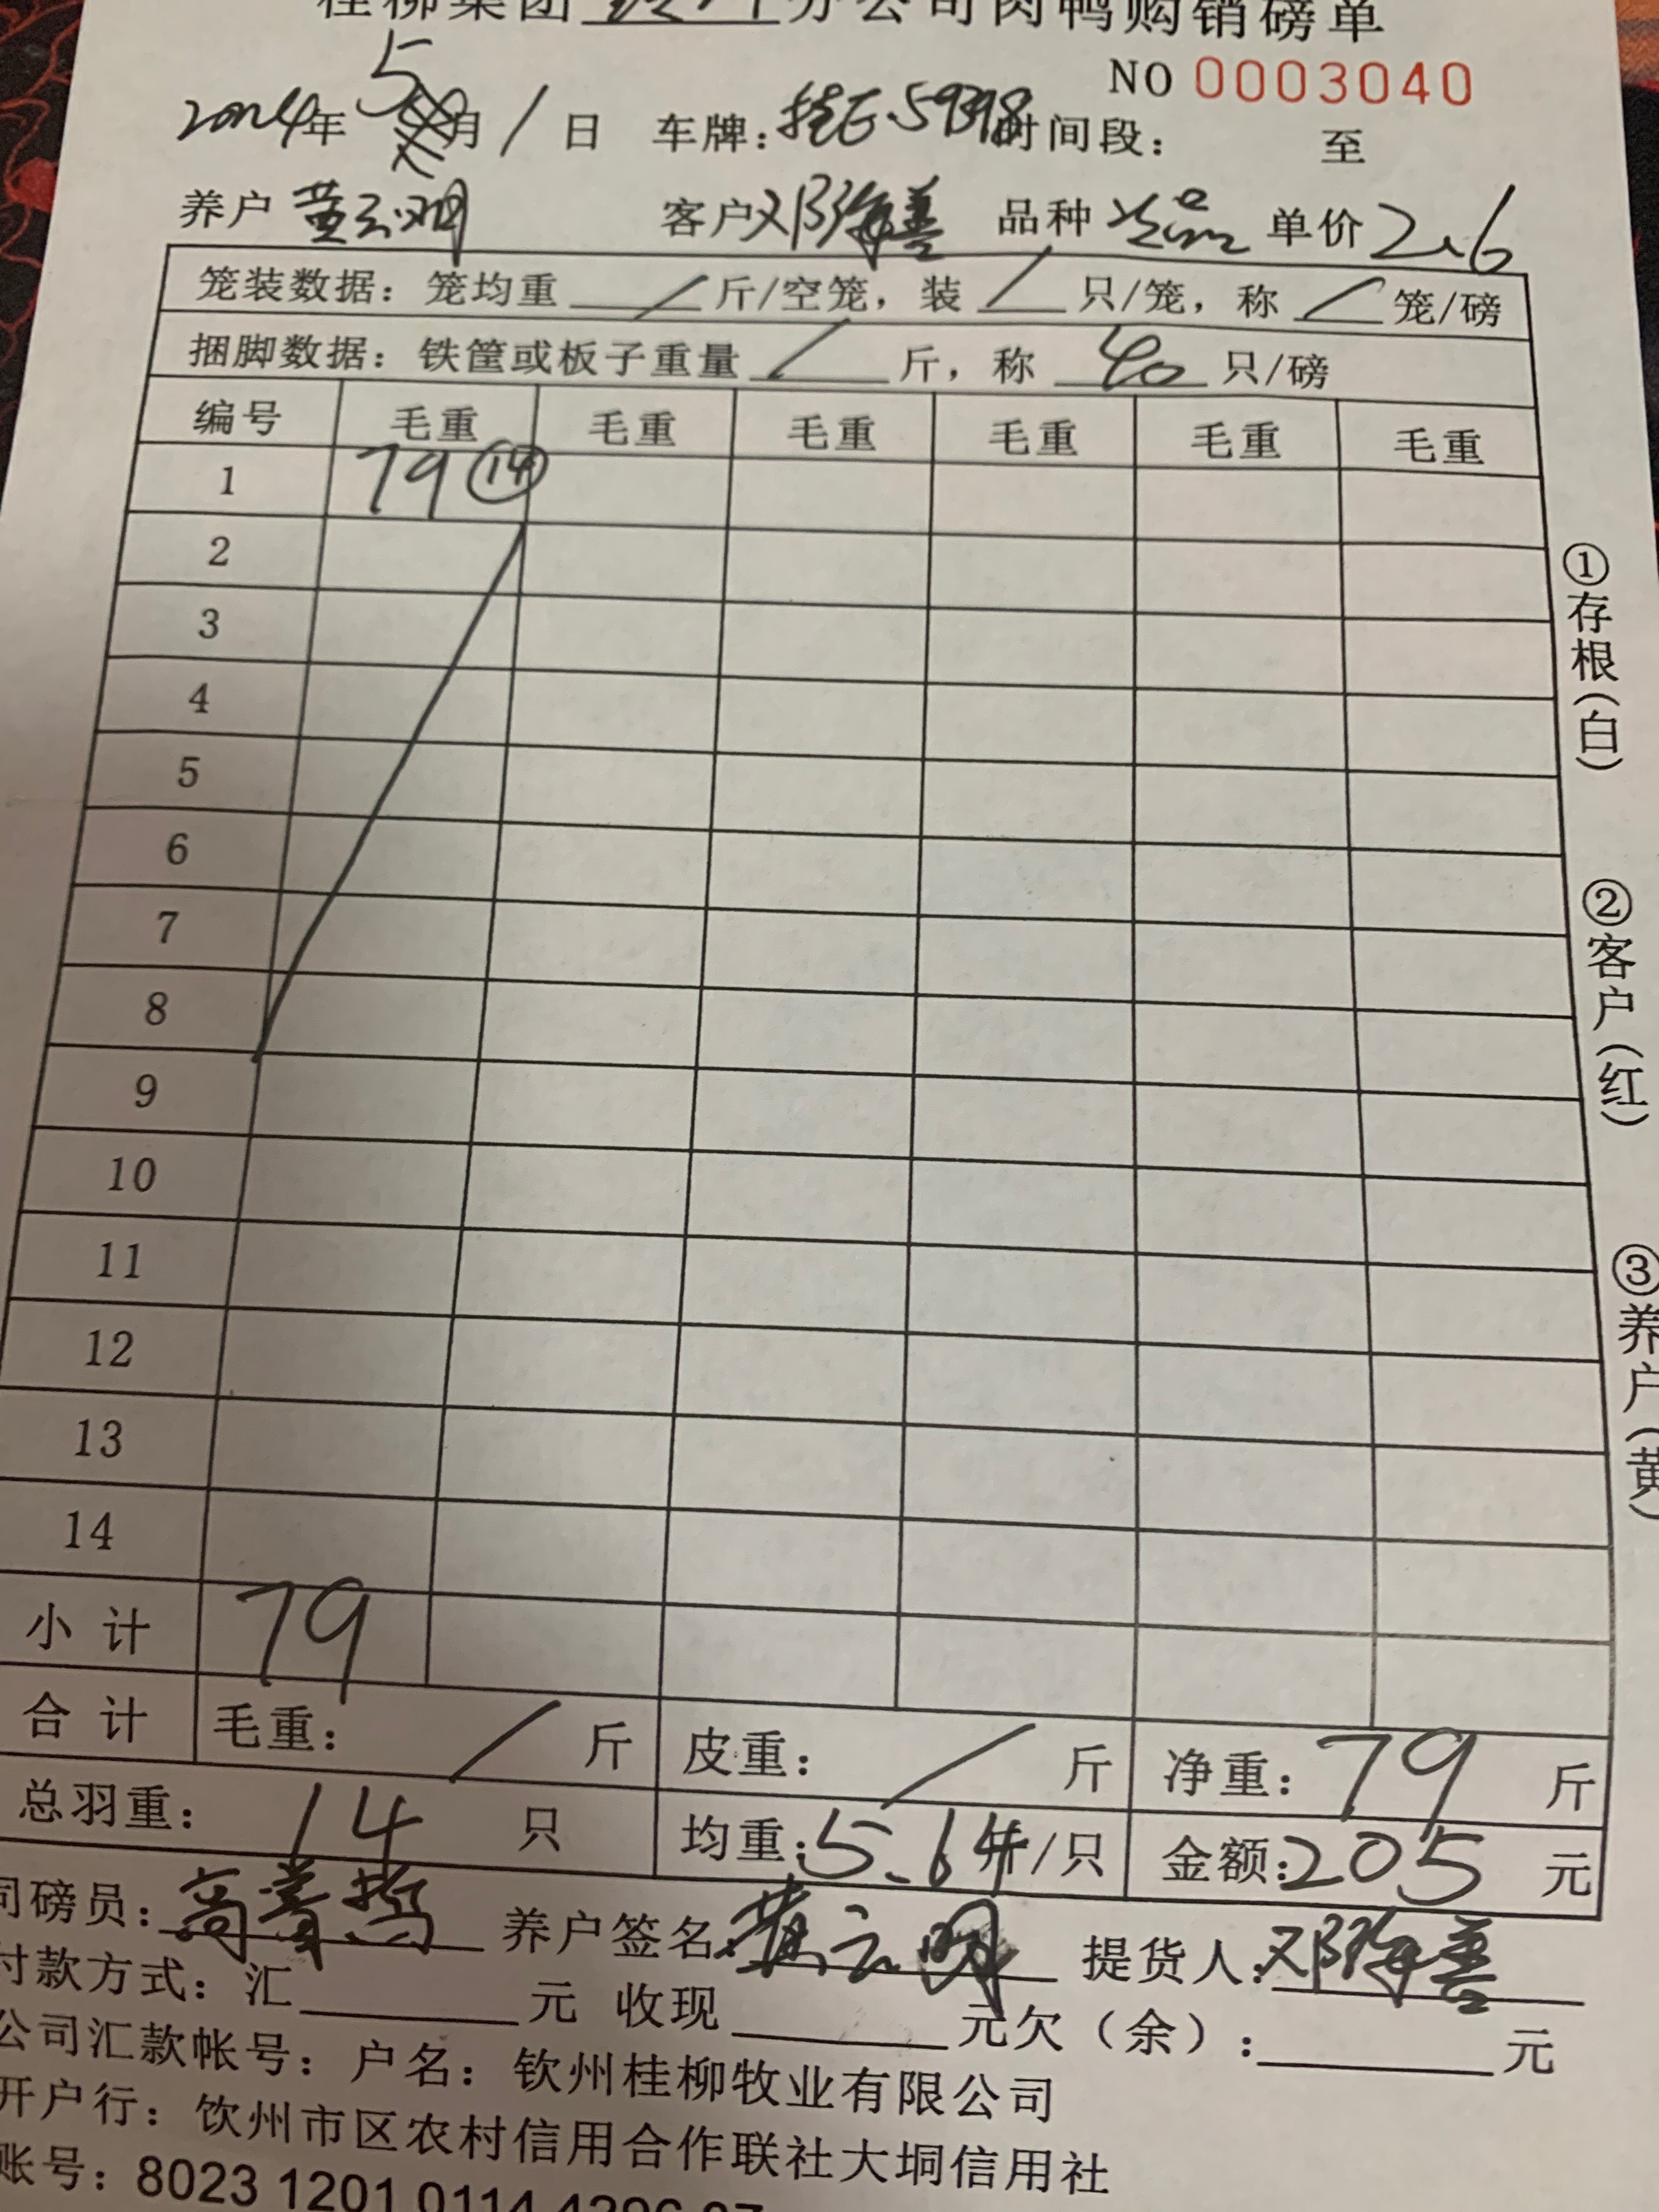 桂柳集团 分公司肉鸭购销磅单
NO 0003040
2024年 5月 1日 车牌：桂E·59398 时间段： 至
养户 黄云明 客户 邓海善 品种 次品 单价 2.6
笼装数据：笼均重 / 斤/空笼，装 / 只/笼，称 / 笼/磅
捆脚数据：铁筐或板子重量 / 斤，称 40 只/磅
编号 毛重 毛重 毛重 毛重 毛重 毛重
1 79 ⑭
2
3
4
5
6
7
8
9
10
11
12
13
14
小计 79
合计 毛重： / 斤 皮重： / 斤 净重：79 斤
总羽重： 14 只 均重：5.64斤/只 金额：205 元
司磅员： 养户签名：黄云明 提货人：邓海善
付款方式：汇 元 收现 元欠（余）： 元
公司汇款帐号：户名：钦州桂柳牧业有限公司
开户行：饮州市区农村信用合作联社大垌信用社
账号：8023 1201 0114 4296 07
①存根（白）
②客户（红）
③养户（黄）